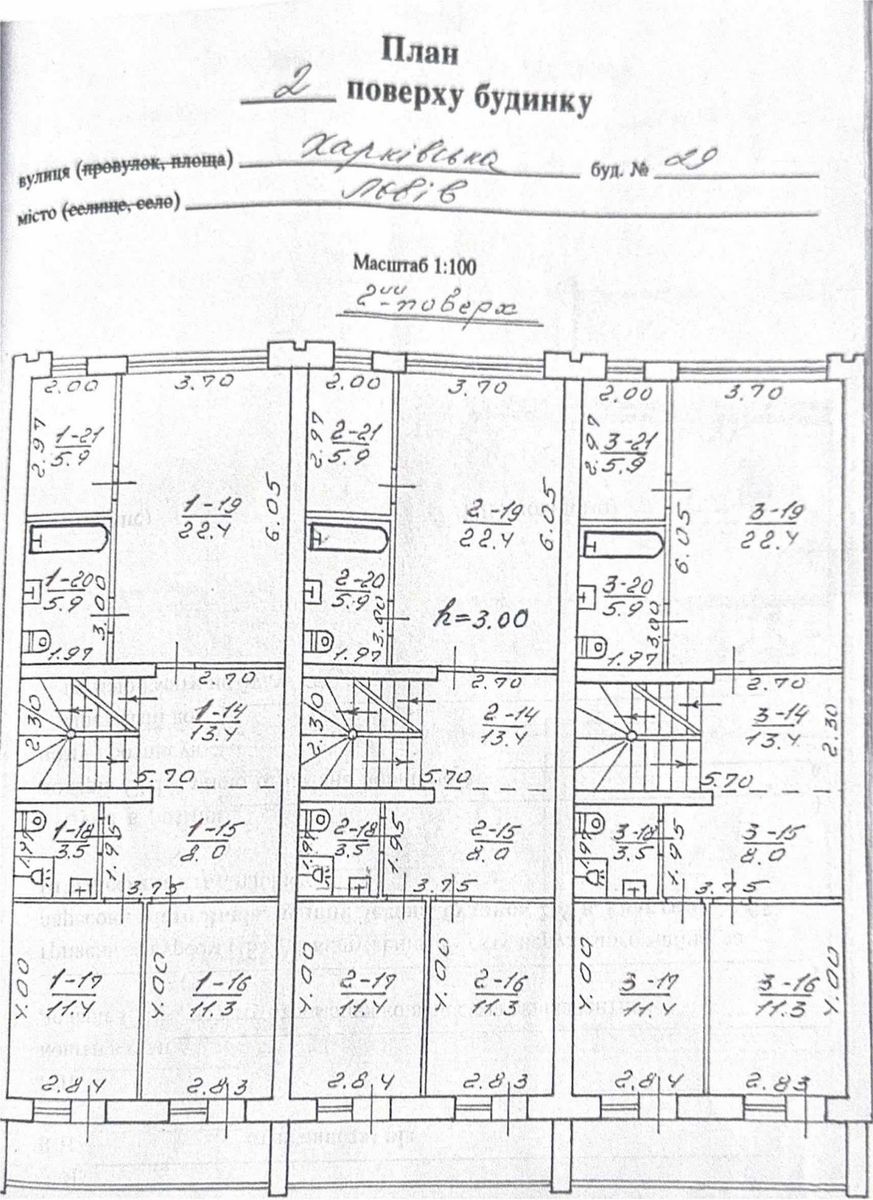 План
2 поверху будинку
вулиця (провулок, площа) Харківська буд. № 29
місто (селище, село) Львів
Масштаб 1:100
2ий-поверх
2.00 3.70 2.00 3.70 2.00 3.70
2.97 1-21 5.9 2.97 2-21 5.9 2.97 3-21 5.9
1-19 22.4 6.05 2-19 22.4 6.05 6.05 3-19 22.4
1-20 5.9 3.00 2-20 5.9 3.00 3-20 5.9 3.00
h=3.00
1.97 1.97 1.97
2.70 2.70 2.70
2.30 1-14 13.4 2.30 2-14 13.4 3-14 13.4 2.30
5.70 5.70 5.70
1.97 1-18 3.5 1.95 1-15 8.0 1.97 2-18 3.5 1.95 2-15 8.0 1.97 3-18 3.5 1.95 3-15 8.0
3.75 3.75 3.75
4.00 1-17 11.4 4.00 1-16 11.3 4.00 2-17 11.4 4.00 2-16 11.3 4.00 3-17 11.4 3-16 11.3 4.00
2.84 2.83 2.84 2.83 2.84 2.83